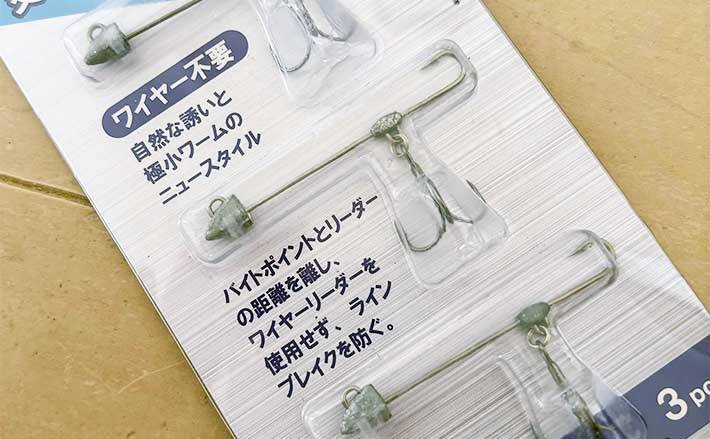 ワイヤー不要
自然な誘いと
極小ワームの
ニュースタイル
バイトポイントとリーダー
の距離を離し、
ワイヤーリーダーを
使用せず、ライン
ブレイクを防ぐ。
3